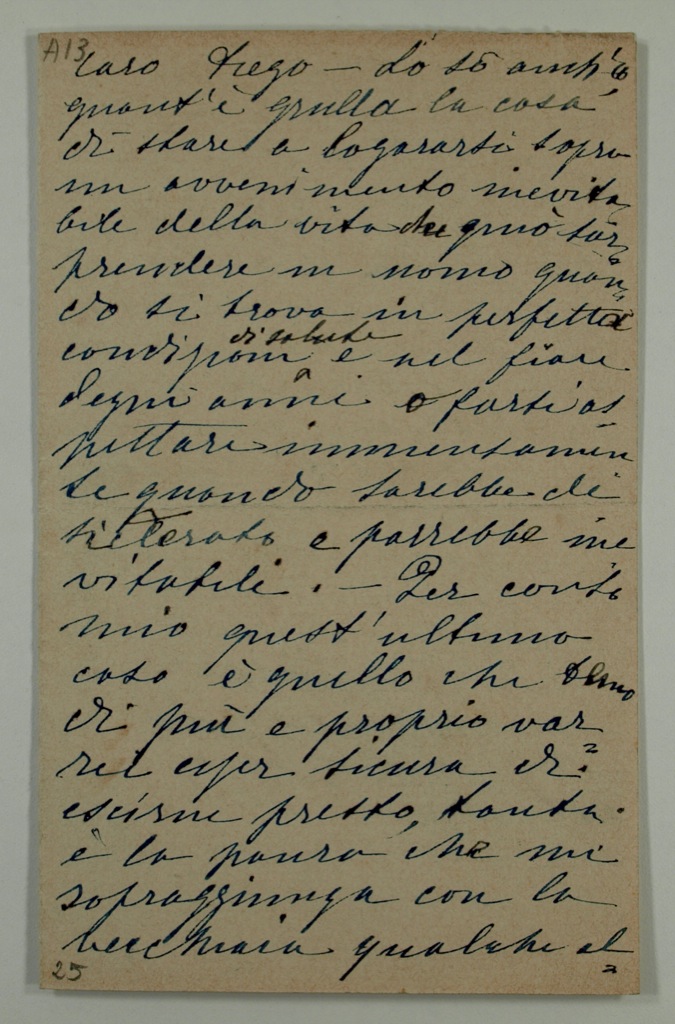 A13
Caro Diego – Lo so anch'io
quant'è grulla la cosa
di stare a logorarsi sopra
un avvenimento inevita
bile della vita che può sor=
prendere un uomo quan=
do si trova in perfetta
condizioni di salute e nel fiore
degni anni o farsi as
pettare immensamen
te quando sarebbe de
siderato e parrebbe ine
vitabile. – Per conto
mio quest'ultimo
caso è quello che temo
di più e proprio vor
rei esser sicura di=
escirne presto, tanta
è la paura che mi
sopraggiunga con la
vecchiaia qualche al=
25